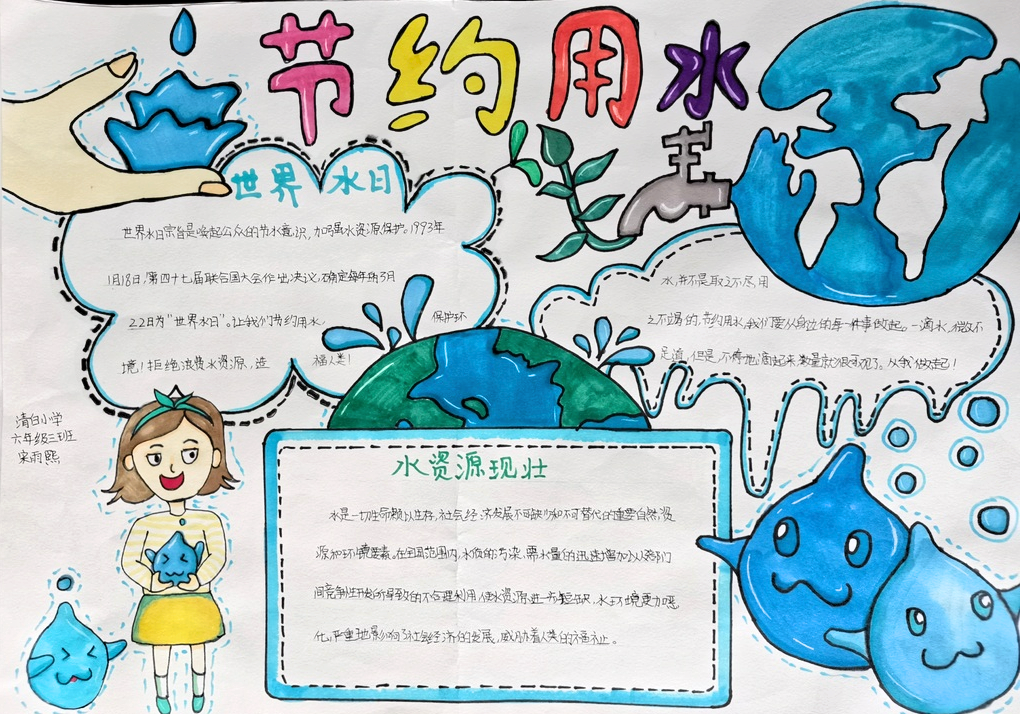 节约用水
世界水日
世界水日宗旨是唤起公众的节水意识,加强水资源保护。1993年
1月18日,第四十七届联合国大会作出决议,确定每年的3月
22日为“世界水日”。让我们节约用水 保护环
境!拒绝浪费水资源,造 福人类!
水,并不是取之不尽,用
之不竭的,节约用水,我们要从身边的每一件事做起。一滴水,微不
足道,但是,不停地滴起来数量就很可观了。从我做起!
清白小学
六年级三班
宋雨熙
水资源现壮
水是一切生命赖以生存,社会经济发展不可缺少和不可替代的重要自然资
源和环境要素。在全国范围内,水质的污染、需水量的迅速增加以及部门
间竞争性开发所导致的不合理利用,使水资源进一步短缺,水环境更加恶
化,严重地影响了社会经济的发展,威胁着人类的福祉。